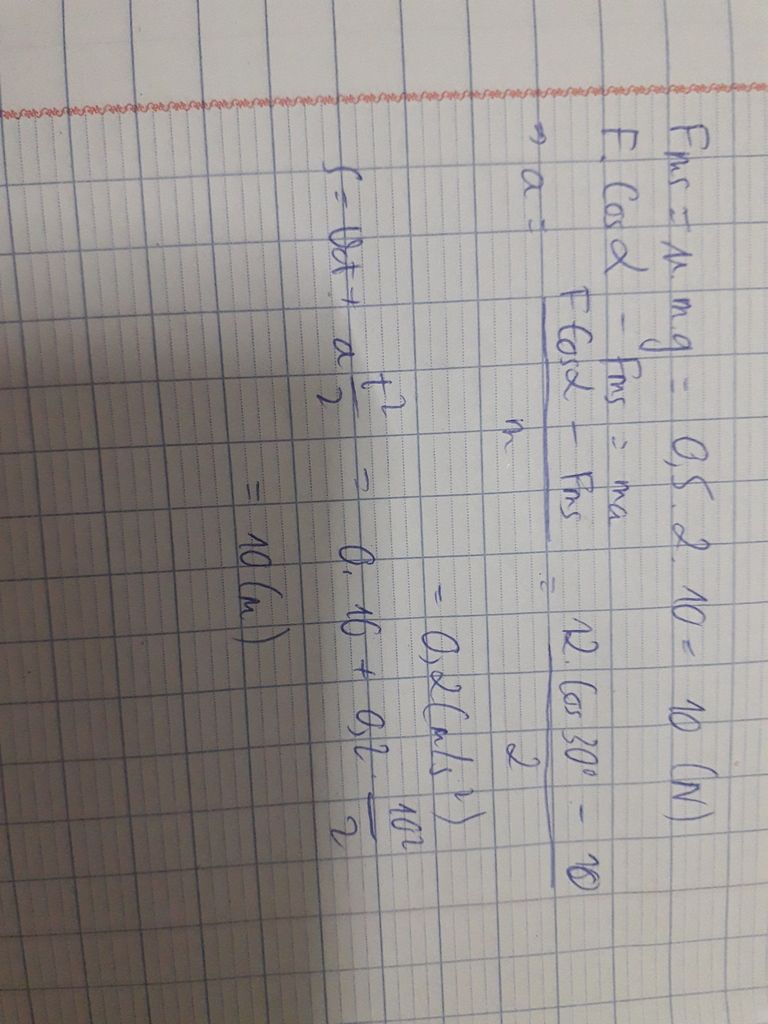 Fms = μ.mg = 0,5.2.10 = 10 (N)
F.Cosα - Fms = ma
⇒ a = (F Cosα - Fms)/m = (12.Cos 30° - 10)/2
= 0,2 (m/s²)
S = V₀t + a t²/2 = 0.10 + 0,2.10²/2
= 10 (m)